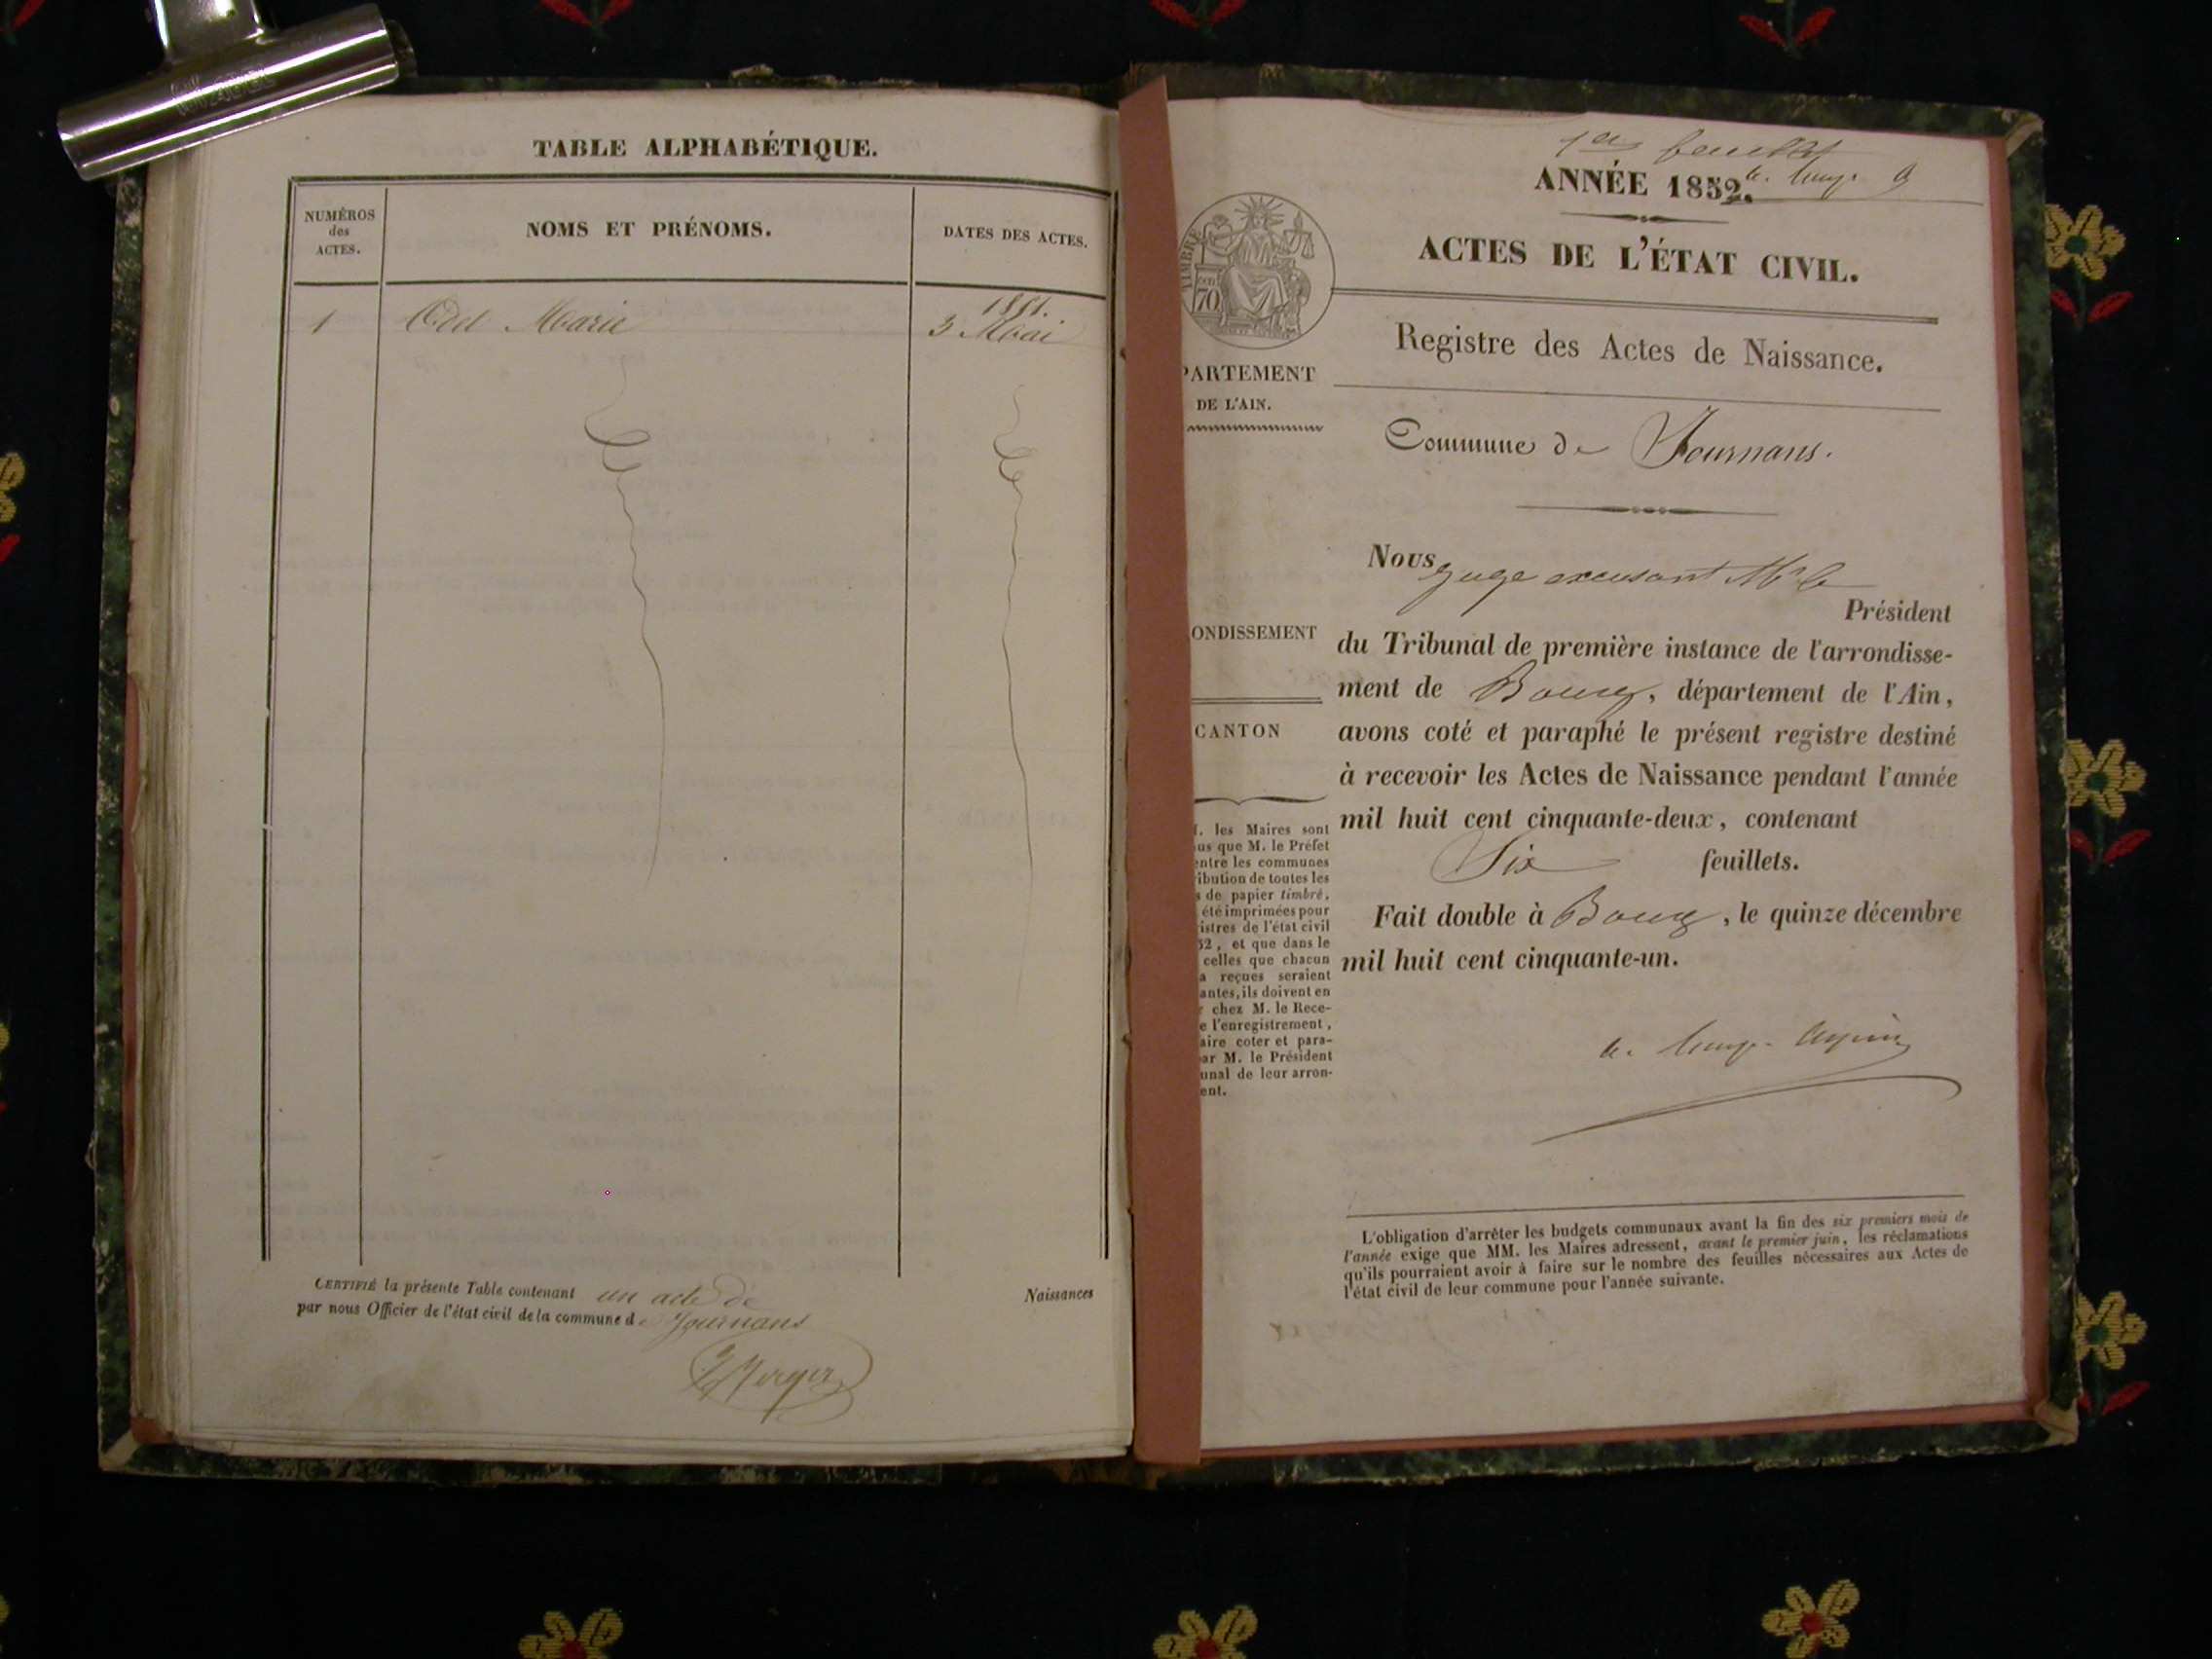 TABLE ALPHABÉTIQUE.
NUMÉROS
des
ACTES.
NOMS ET PRÉNOMS.
DATES DES ACTES.
1851.
1 Odet Marie 3 Mai
CERTIFIÉ la présente Table contenant un acte de Naissances
par nous Officier de l'état civil de la commune de Journans
1er feuillet
ANNÉE 1852.
ACTES DE L'ÉTAT CIVIL.
TIMBRE
70
Registre des Actes de Naissance.
PARTEMENT
DE L'AIN.
Commune de Journans.
Nous juge excusant Mr le
Président
ONDISSEMENT
du Tribunal de première instance de l'arrondisse-
ment de Bourg, département de l'Ain,
CANTON
avons coté et paraphé le présent registre destiné
à recevoir les Actes de Naissance pendant l'année
mil huit cent cinquante-deux, contenant
Six feuillets.
Fait double à Bourg, le quinze décembre
mil huit cent cinquante-un.
. les Maires sont
us que M. le Préfet
entre les communes
ibution de toutes les
s de papier timbré,
été imprimées pour
istres de l'état civil
52, et que dans le
celles que chacun
a reçues seraient
antes, ils doivent en
r chez M. le Rece-
e l'enregistrement,
aire coter et para-
ar M. le Président
unal de leur arron-
ent.
L'obligation d'arrêter les budgets communaux avant la fin des six premiers mois de
l'année exige que MM. les Maires adressent, avant le premier juin, les réclamations
qu'ils pourraient avoir à faire sur le nombre des feuilles nécessaires aux Actes de
l'état civil de leur commune pour l'année suivante.